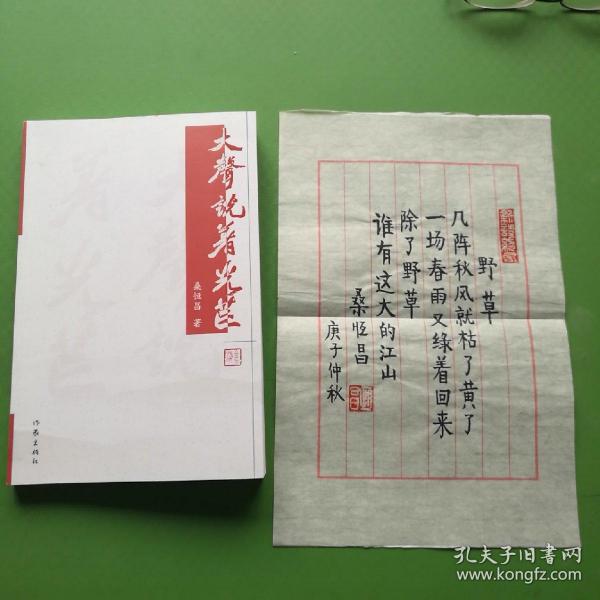 大聲說着光芒
桑恒昌 著
作家出版社
野草
几阵秋风就枯了黄了
一场春雨又绿着回来
除了野草
谁有这大的江山
桑恒昌
庚子仲秋
孔夫子旧书网
www.kongfz.com